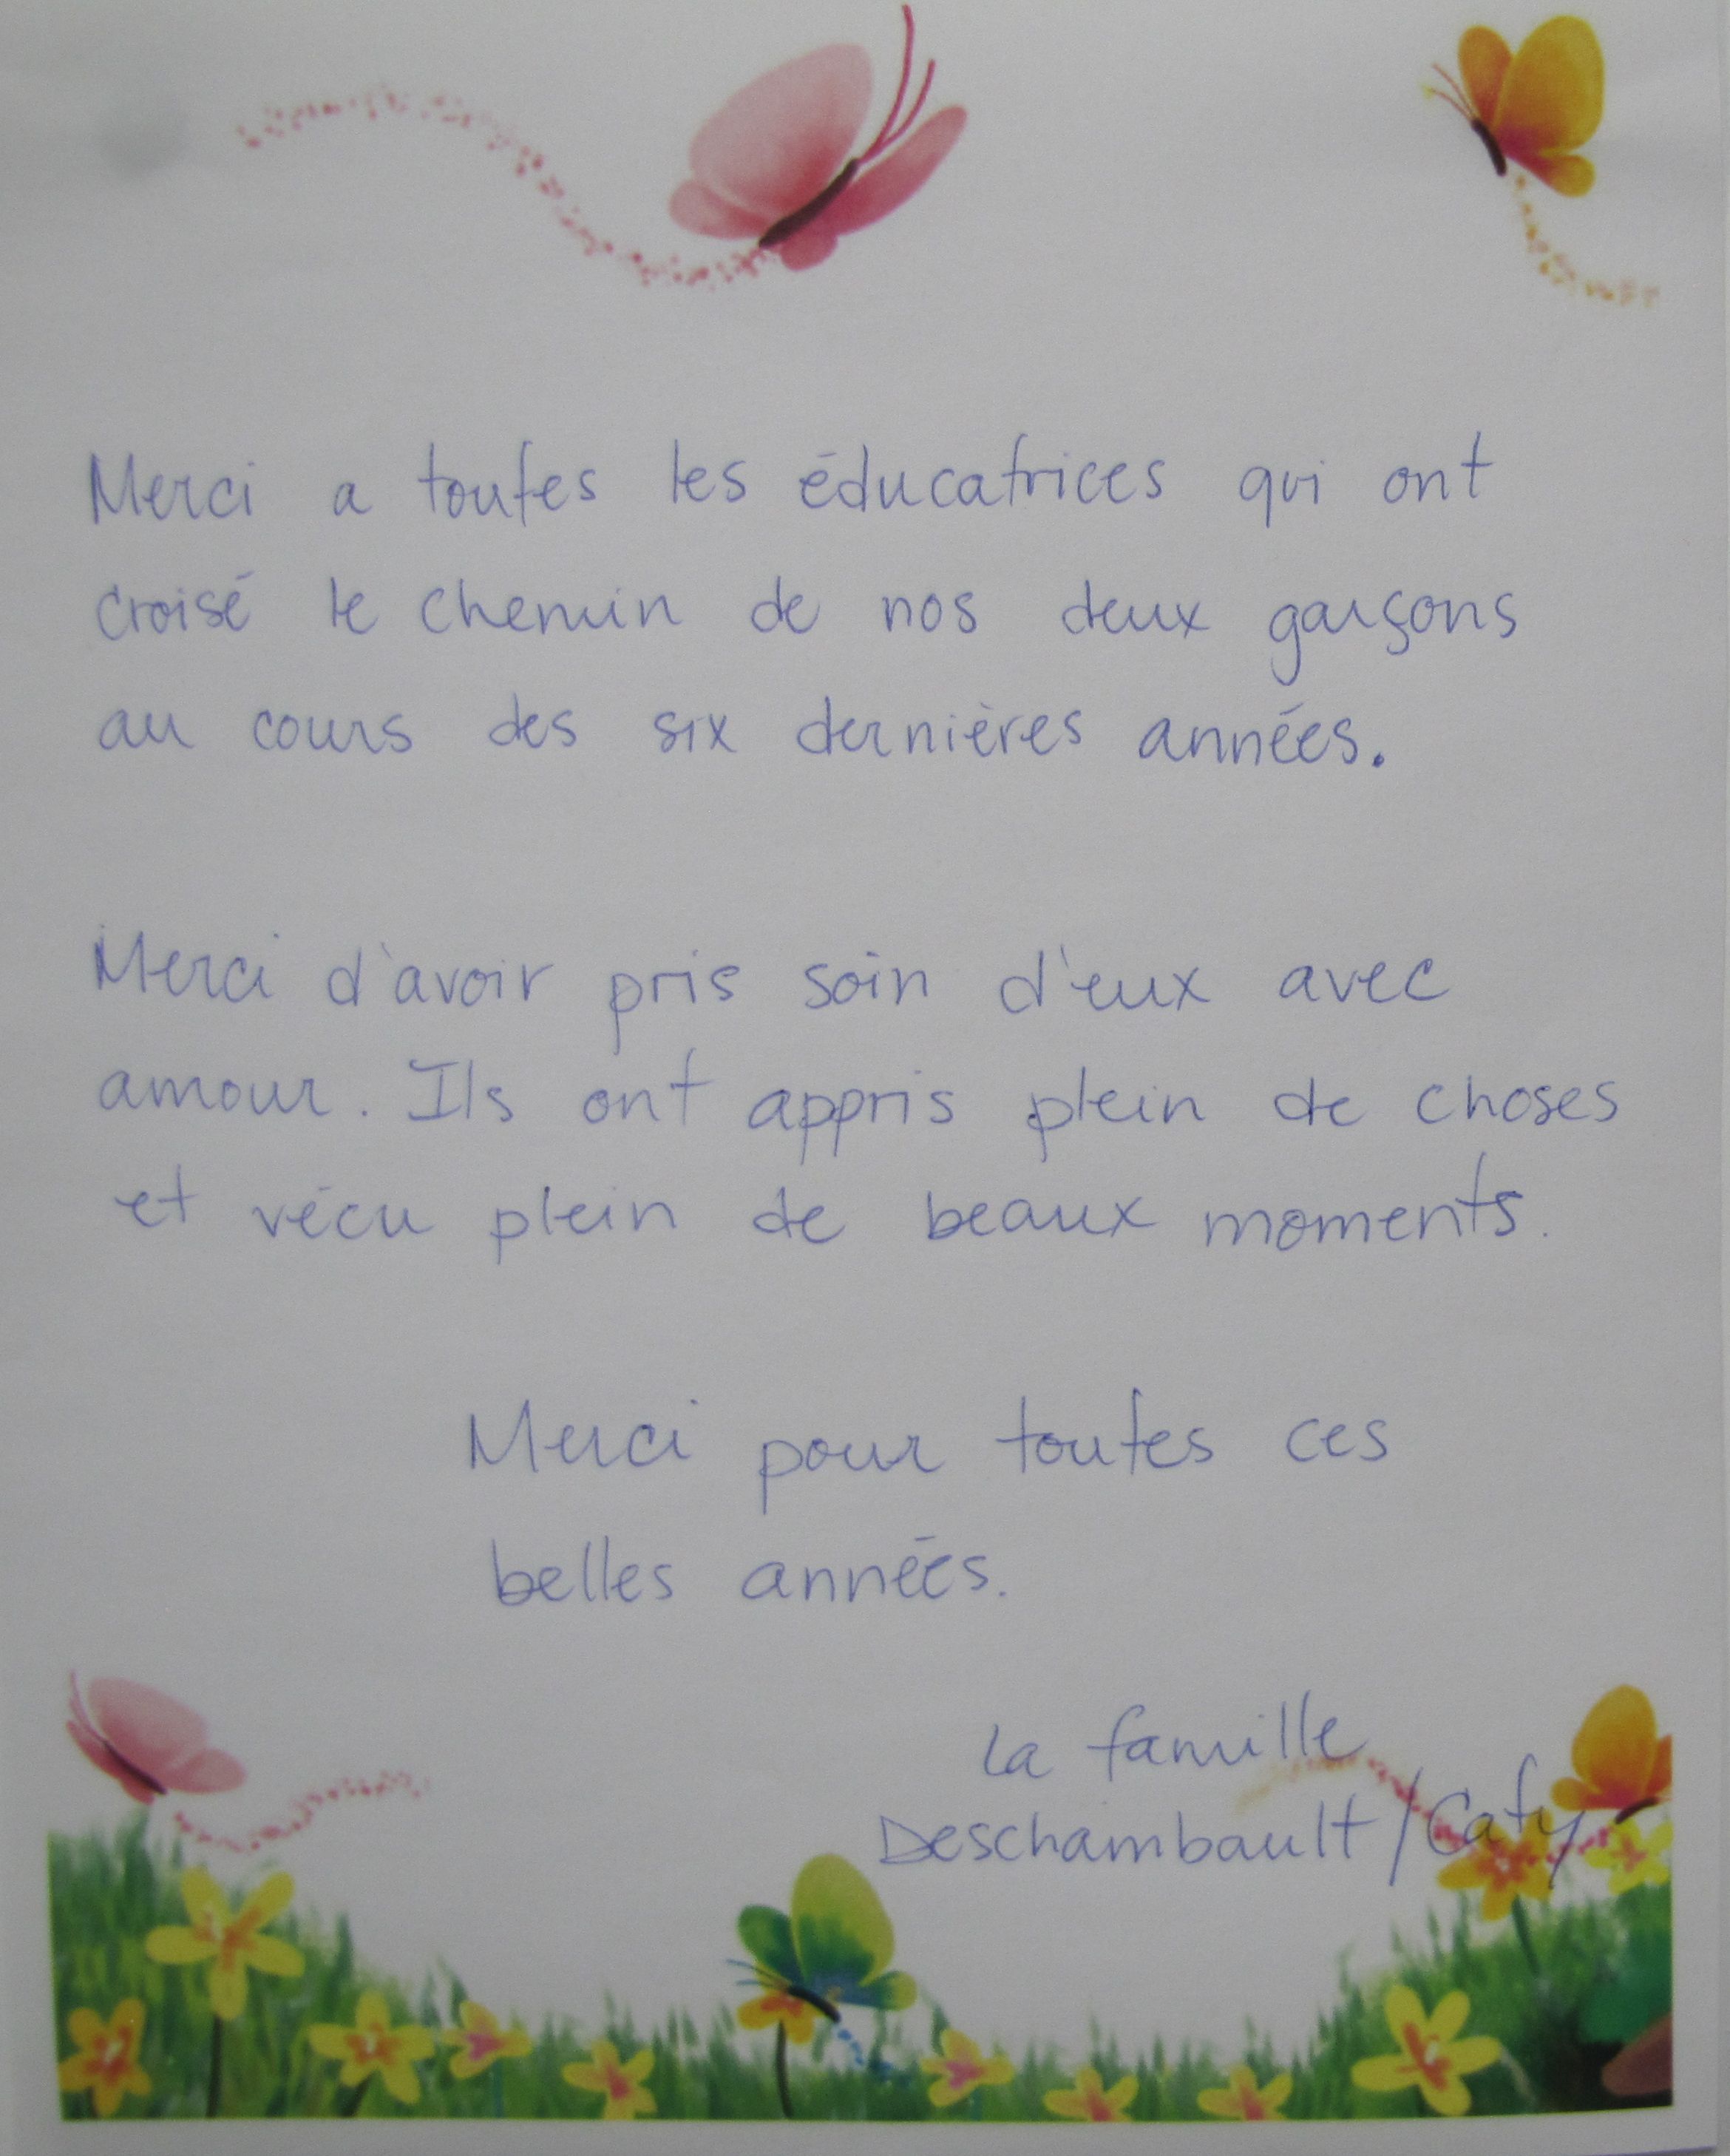 Merci a toutes les éducatrices qui ont
croisé le chemin de nos deux garçons
au cours des six dernières années.
Merci d'avoir pris soin d'eux avec
amour. Ils ont appris plein de choses
et vécu plein de beaux moments.
Merci pour toutes ces
belles années.
La famille
Deschambault/Caty